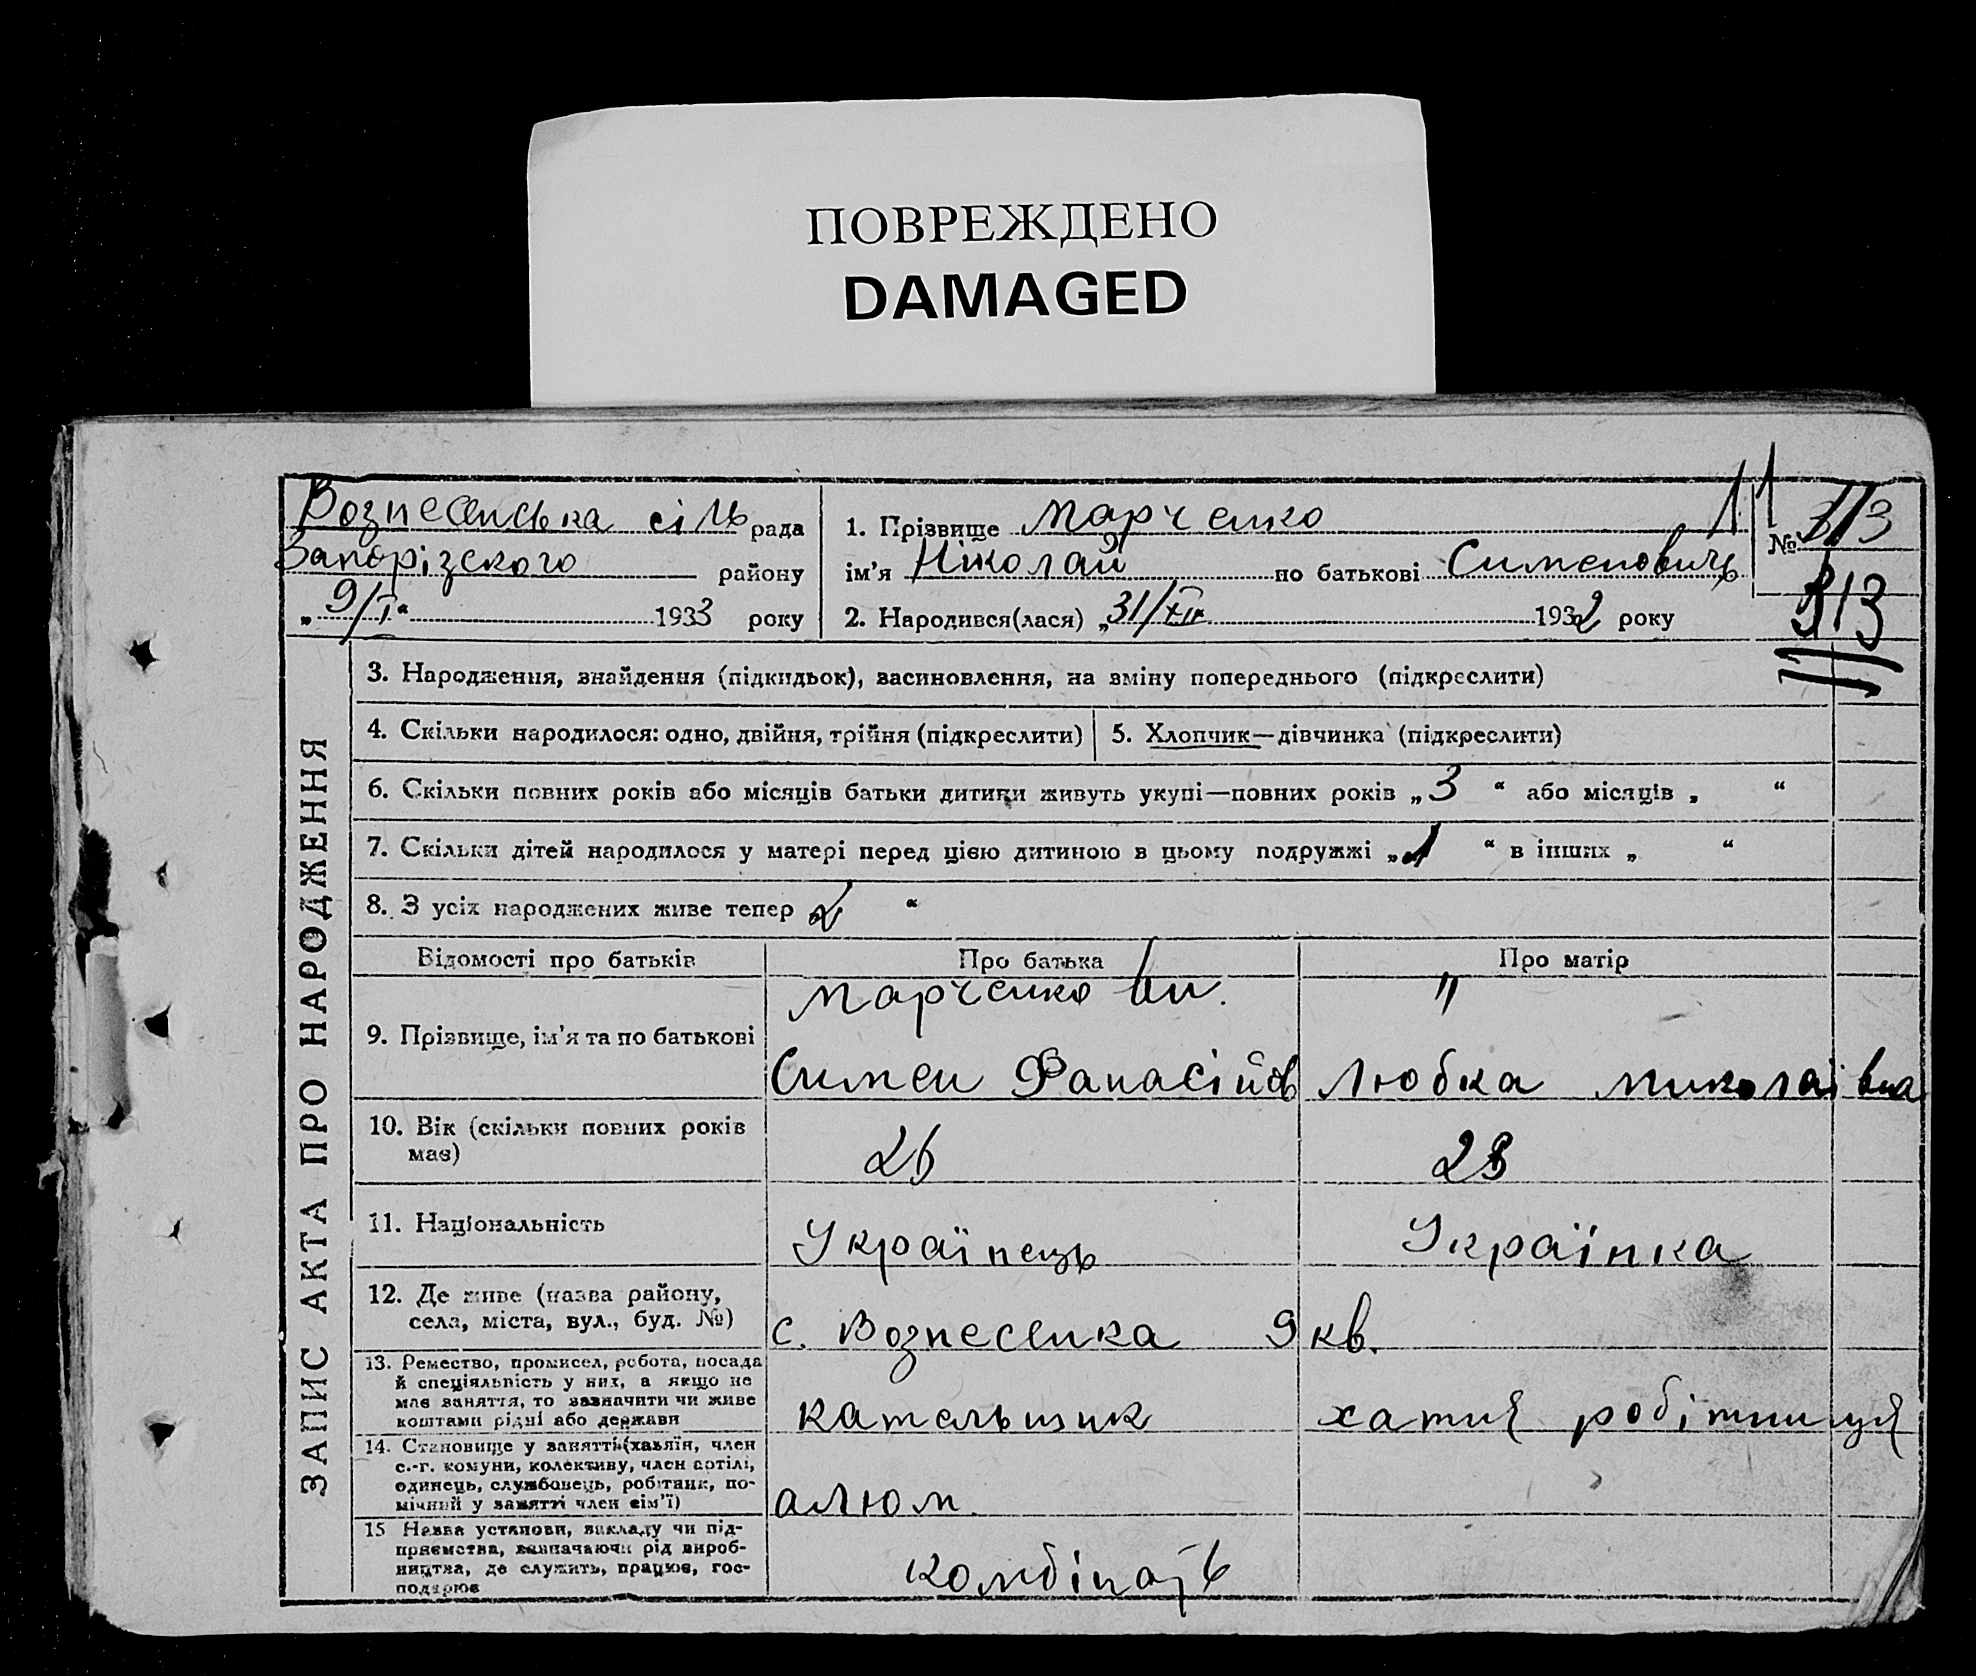 ПОВРЕЖДЕНО
DAMAGED
Вознесенська сіль рада
Запорізского району
„ 9/I “ 1933 року
1. Прізвище Марченко
ім’я Ніколай по батькові Сименовичь
2. Народився(лася) „31/XII“ 1932 року
11
№ 313
313
ЗАПИС АКТА ПРО НАРОДЖЕННЯ
3. Народження, знайдення (підкидьок), засиновлення, на зміну попереднього (підкреслити)
4. Скільки народилося: одно, двійня, трійня (підкреслити)
5. Хлопчик—дівчинка (підкреслити)
6. Скільки повних років або місяців батьки дитини живуть укупі—повних років „ 3 “ або місяців „ “
7. Скільки дітей народилося у матері перед цією дитиною в цьому подружжі „ 1 “ в інших „ “
8. З усіх народжених живе тепер 2 “
Відомості про батьків
Про батька
Про матір
9. Прізвище, ім’я та по батькові
Марченко
Симен Фанасійов
"
Любка Миколаівна
10. Вік (скільки повних років
має)
26
23
11. Національність
Українець
Українка
12. Де живе (назва району,
села, міста, вул., буд. №)
с. Вознесенка 9 кв.
13. Ремество, промисел, робота, посада
й спеціяльність у них, а якщо не
має заняття, то зазначити чи живе
коштами рідні або держави
катальщик
хатня робітниця
14. Становище у занятті (хазяїн, член
с.-г. комуни, колективу, член артілі,
одинець, службовець, робітник, по-
мічний у занятті член сім’ї)
алюм.
15 Назва установи, закладу чи під-
приємства, зазначаючи рід вироб-
ництва, де служить, працює, гос-
подарює
комбінатъ